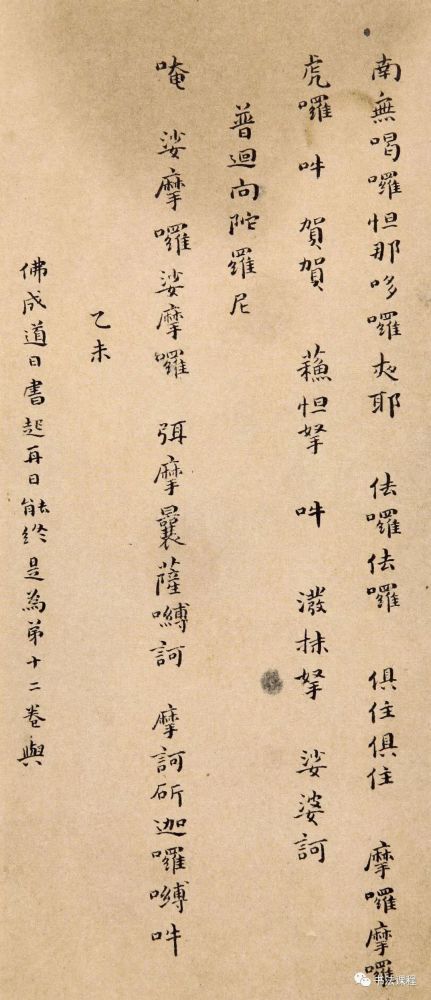 南無喝囉怛那哆囉夜耶 佉囉佉囉 俱住俱住 摩囉摩囉
虎囉 吽 賀賀 蘓怛拏 吽 潑抹拏 娑婆訶
普迴向陀羅尼
唵 娑摩囉娑摩囉 弭摩曩薩嚩訶 摩訶斫迦囉嚩吽
乙未
佛成道日書起再日能終是為第十二卷與
书法课程